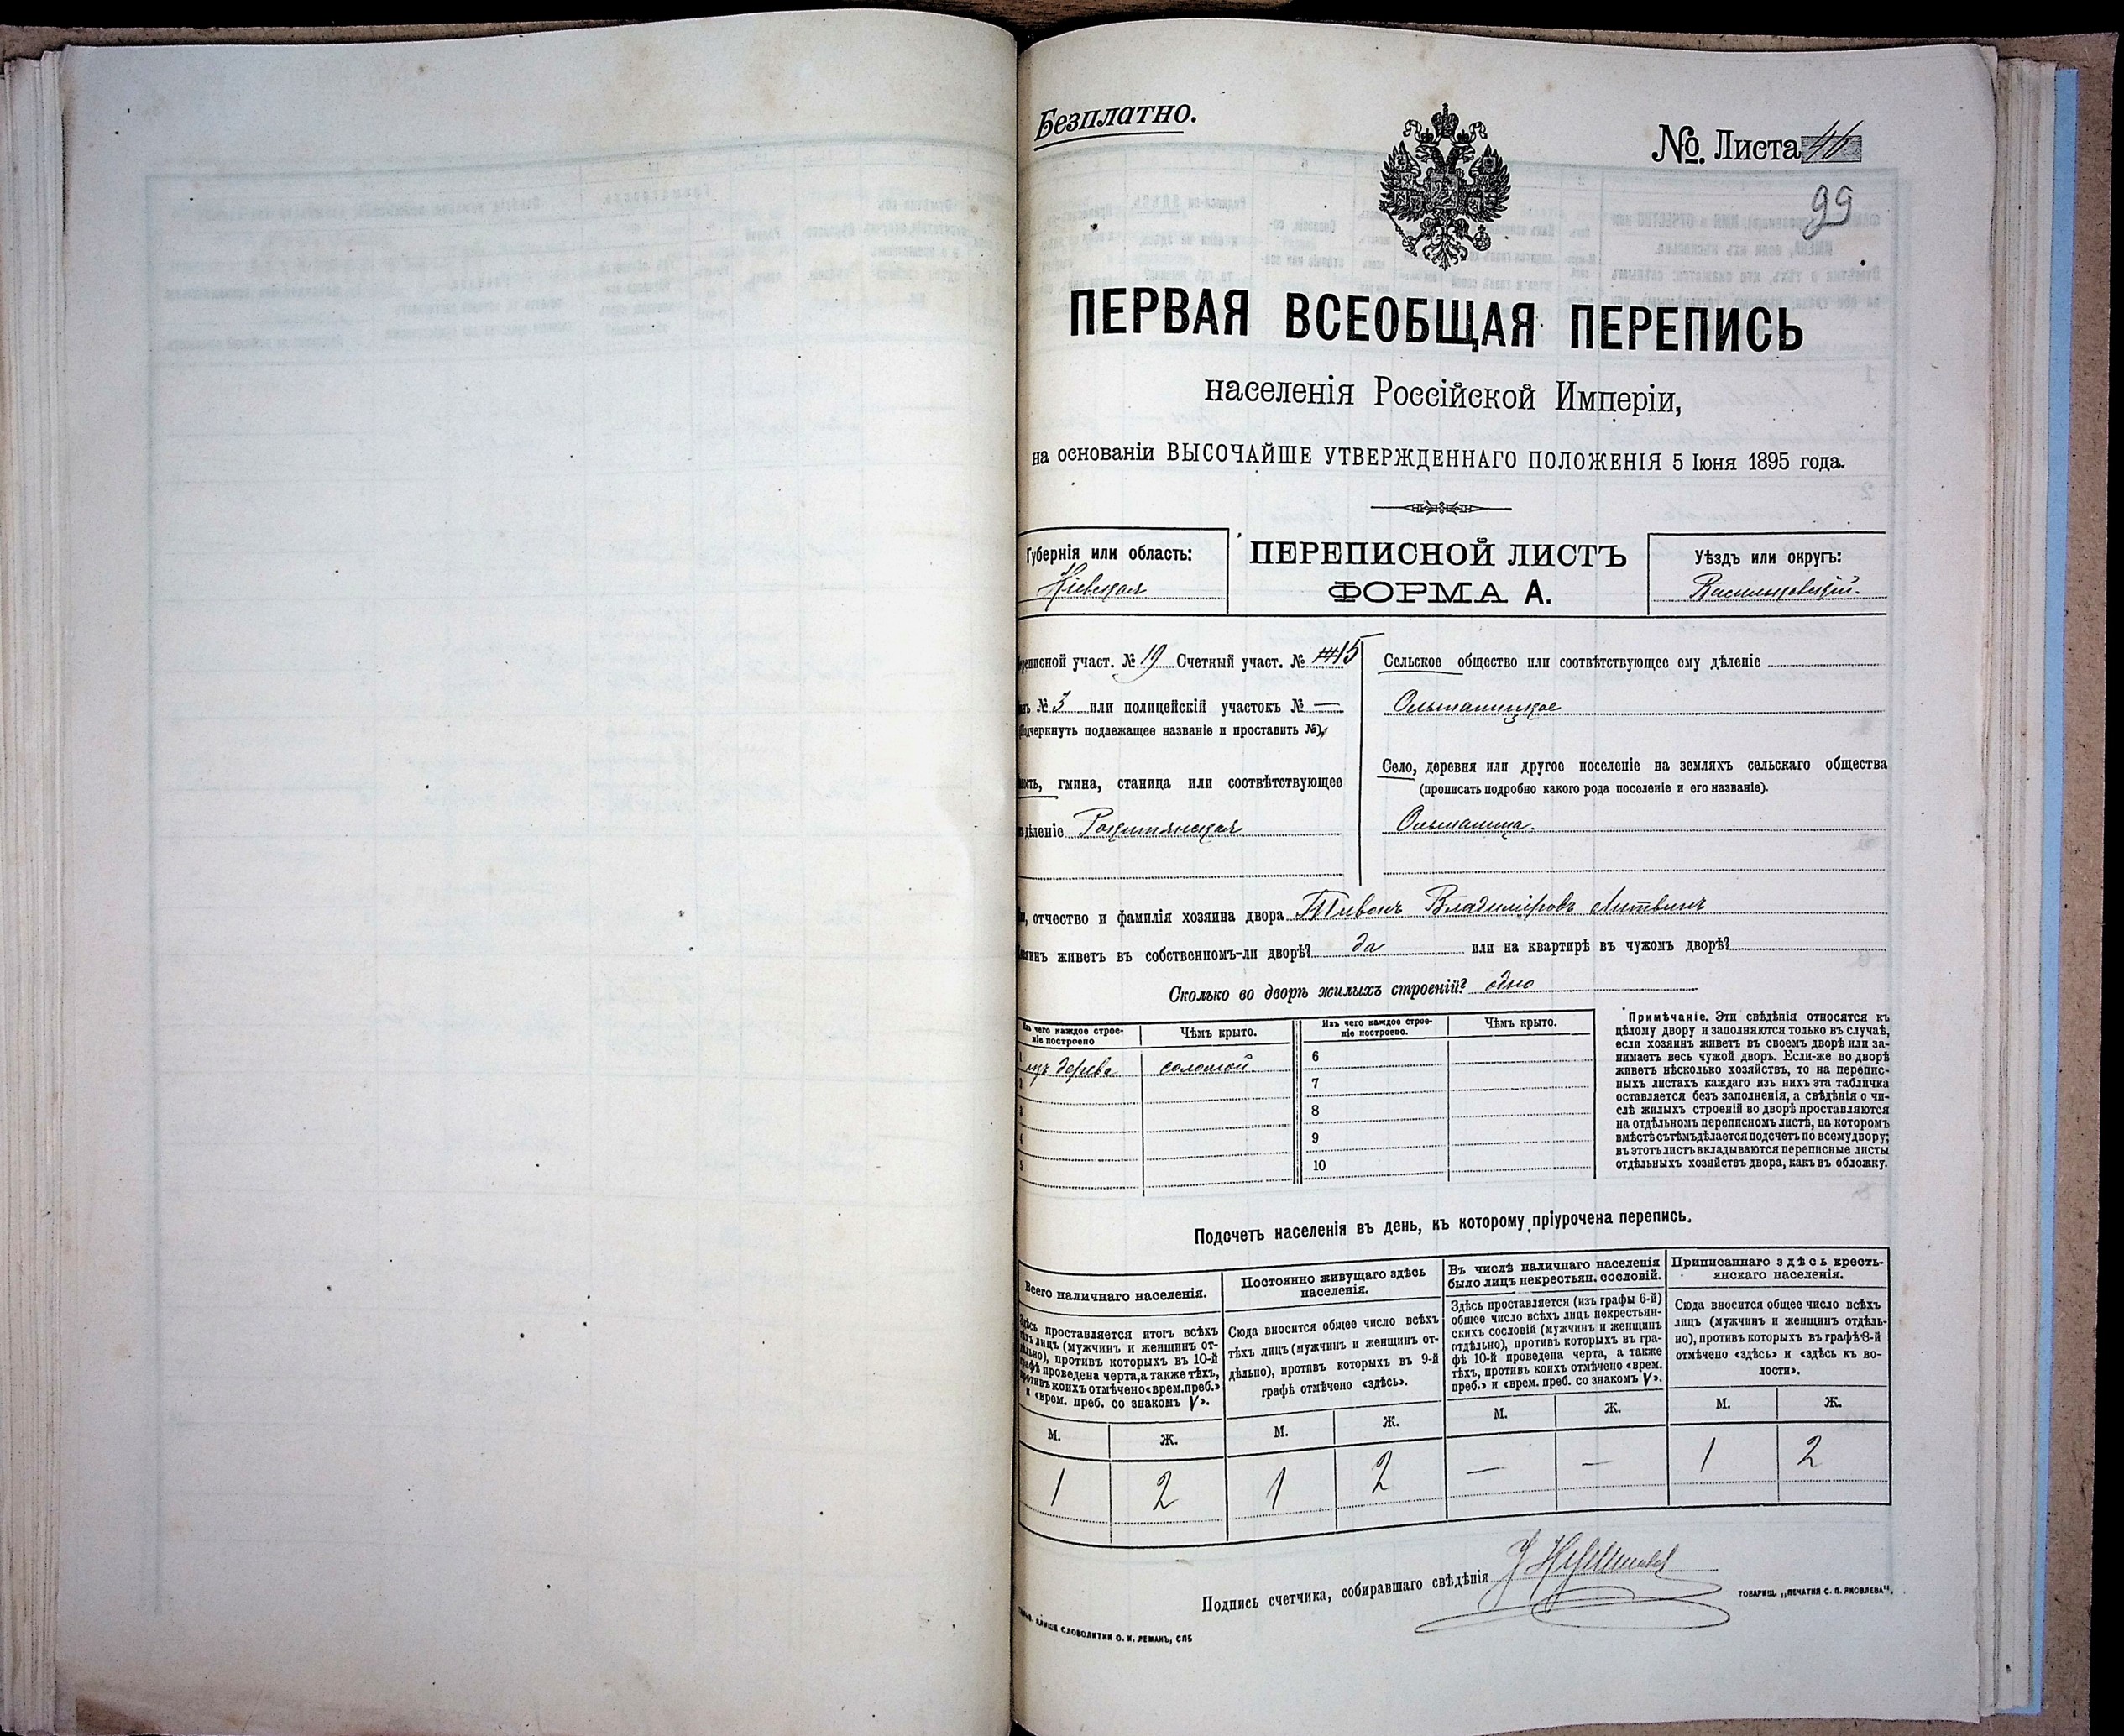 Безплатно.
№. Листа 46
99
ПЕРВАЯ ВСЕОБЩАЯ ПЕРЕПИСЬ
населенія Россійской Имперіи,
на основаніи ВЫСОЧАЙШЕ УТВЕРЖДЕННАГО ПОЛОЖЕНІЯ 5 Іюня 1895 года.
Губернія или область:
Кіевская
ПЕРЕПИСНОЙ ЛИСТЪ
ФОРМА А.
Уѣздъ или округъ:
Васильковскій.
реписной участ. № 19 Счетный участ. № 15
нъ № 3 или полицейскій участокъ № —
(Подчеркнуть подлежащее названіе и проставить №).
ость, гмина, станица или соотвѣтствующее
дѣленіе Рокитянская
Сельское общество или соотвѣтствующее ему дѣленіе
Ольшаницкое
Село, деревня или другое поселеніе на земляхъ сельскаго общества
(прописать подробно какого рода поселеніе и его названіе).
Ольшаница.
, отчество и фамилія хозяина двора Пивонъ Владиміровъ Литвинъ
зяинъ живетъ въ собственномъ-ли дворѣ? да или на квартирѣ въ чужомъ дворѣ?
Сколько во дворѣ жилыхъ строеній? одно
Изъ чего каждое строе-
ніе построено
Чѣмъ крыто.
Изъ чего каждое строе-
ніе построено.
Чѣмъ крыто.
1 изъ дерева соломой 6
2 7
3 8
4 9
5 10
Примѣчаніе. Эти свѣдѣнія относятся къ
цѣлому двору и заполняются только въ случаѣ,
если хозяинъ живетъ въ своемъ дворѣ или за-
нимаетъ весь чужой дворъ. Если-же во дворѣ
живетъ нѣсколько хозяйствъ, то на перепис-
ныхъ листахъ каждаго изъ нихъ эта табличка
оставляется безъ заполненія, а свѣдѣнія о чи-
слѣ жилыхъ строеній во дворѣ проставляются
на отдѣльномъ переписномъ листѣ, на которомъ
вмѣстѣ съ тѣмъ дѣлается подсчетъ по всему двору;
въ этотъ листъ вкладываются переписные листы
отдѣльныхъ хозяйствъ двора, какъ въ обложку.
Подсчетъ населенія въ день, къ которому пріурочена перепись.
Всего наличнаго населенія.
Здѣсь проставляется итогъ всѣхъ
тѣхъ лицъ (мужчинъ и женщинъ от-
дѣльно), противъ которыхъ въ 10-й
графѣ проведена черта, а также тѣхъ,
противъ коихъ отмѣчено «врем. преб.»
и «врем. преб. со знакомъ V».
М. Ж.
1 2
Постоянно живущаго здѣсь
населенія.
Сюда вносится общее число всѣхъ
тѣхъ лицъ (мужчинъ и женщинъ от-
дѣльно), противъ которыхъ въ 9-й
графѣ отмѣчено «здѣсь».
М. Ж.
1 2
Въ числѣ наличнаго населенія
было лицъ некрестьян. сословій.
Здѣсь проставляется (изъ графы 6-й)
общее число всѣхъ лицъ некрестьян-
скихъ сословій (мужчинъ и женщинъ
отдѣльно), противъ которыхъ въ гра-
фѣ 10-й проведена черта, а также
тѣхъ, противъ коихъ отмѣчено «врем.
преб.» и «врем. преб. со знакомъ V».
М. Ж.
— —
Приписаннаго здѣсь кресть-
янскаго населенія.
Сюда вносится общее число всѣхъ
лицъ (мужчинъ и женщинъ отдѣль-
но), противъ которыхъ въ графѣ 8-й
отмѣчено «здѣсь» и «здѣсь къ во-
лости».
М. Ж.
1 2
Подпись счетчика, собиравшаго свѣдѣнія
СЛОВОЛИТНИ О. И. ЛЕМАНЪ, СПБ
ТОВАРИЩ. „ПЕЧАТНЯ С. П. ЯКОВЛЕВА".